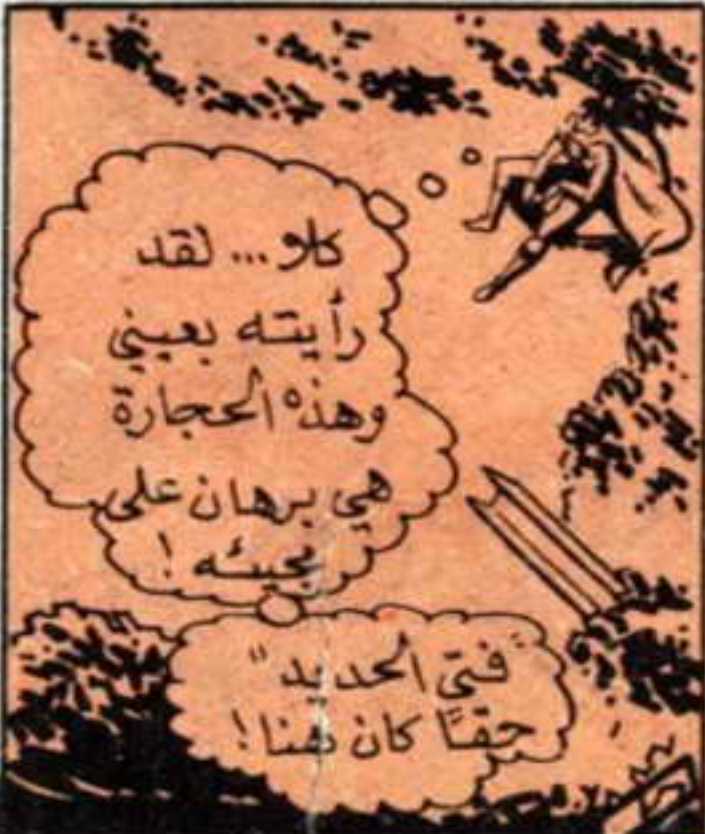 كلا... لقد
رأيته بعيني
وهذه الحجارة
هي برهان على
مجيئه !
"فتى الحديد"
حقًا كان هنا!